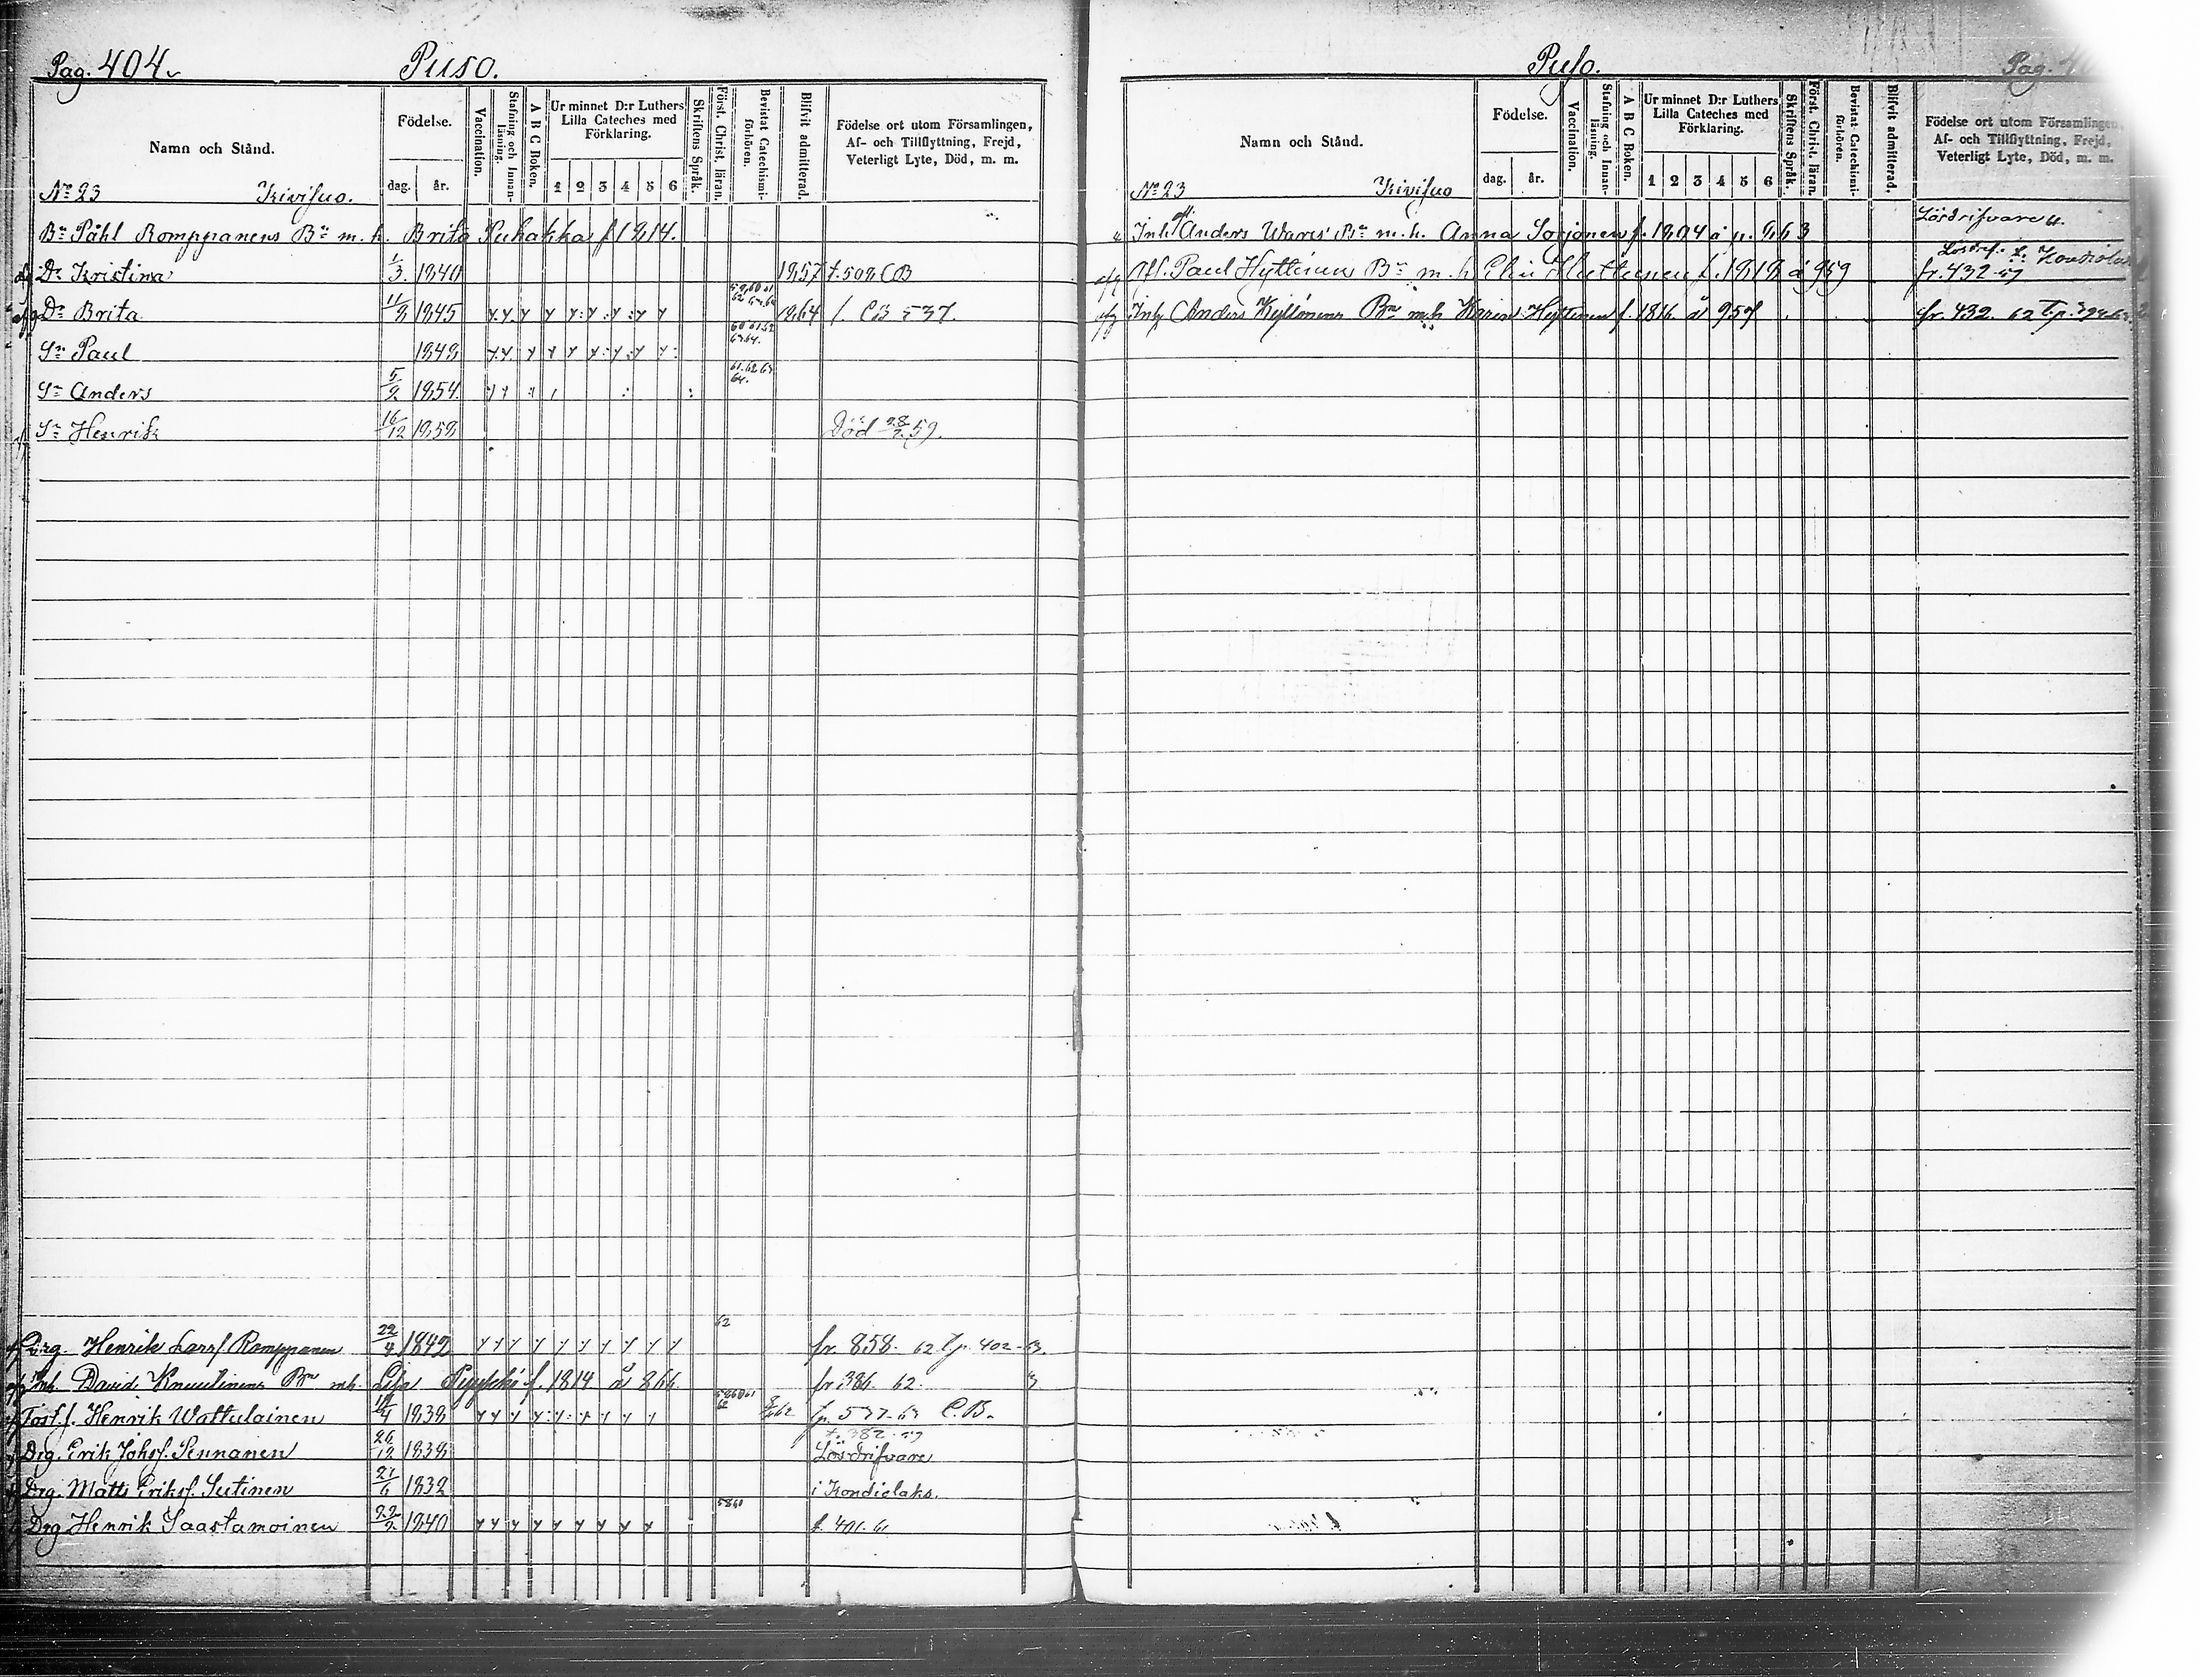 Pag. 404.
Puso.
Namn och Stånd.
Födelse.
dag.
år.
Vaccination.
Stafning och Innanläsning.
A B C Boken.
Ur minnet D:r Luthers Lilla Cateches med Förklaring.
1 2 3 4 5 6
Skriftens Språk.
Först. Christ. läran.
Bevistat Catechismiförhören.
Blifvit admitterad.
Födelse ort utom Församlingen, Af- och Tillflyttning, Frejd, Veterligt Lyte, Död, m. m.
No 23 Kivisuo.
Bn Påhl Romppanens Bn m. h. Brita Kuhakka f 1814.
Dr Kristina 1/3 1840 1857 t. 508 CB
Dr Brita 11/8 1845 1864 CB 537.
Sn Paul 1848
Sn Anders 5/9 1854
Sn Henrik 16/12 1858 Död 28/2 59.
Drg. Henrik Larss Romppanen 22/4 1842 62 fr. 858. 62 t.p. 402-63.
Inh. David Knuutinens Bn mh. Lisa f. 1814 å 866. fr 386. 62.
Tosf. f. Henrik Wattulainen 1838 t.p. 537-63 C.B.
Drg. Erik Johsf. Sennanen 26/12 1838 t. 382-59 Lösdrifvare
Drg. Matts Eriksf. Sutinen 21/6 1832 i Kondiolaks.
Drg Henrik Saastamoinen 1840 5860 t. 401. 61
Puso.
Pag.
Namn och Stånd.
Födelse.
dag.
år.
Vaccination.
Stafning och Innanläsning.
A B C Boken.
Ur minnet D:r Luthers Lilla Cateches med Förklaring.
1 2 3 4 5 6
Skriftens Språk.
Först. Christ. läran.
Bevistat Catechismiförhören.
Blifvit admitterad.
Födelse ort utom Församlingen, Af- och Tillflyttning, Frejd, Veterligt Lyte, Död, m. m.
No 23 Kivisuo
Inh. Anders Wares Bn m. h. Anna Sorjonen f. 1804 å p. 863 Lösdrifvare
Aff. Paul Hyttinen Bn m. h. Elin Huttunen f. 1818 å 959 fr. 432-57
Inh Anders Kyllönens Bn mh Karin Hyttinen f. 1816 å 957 fr. 432. 62